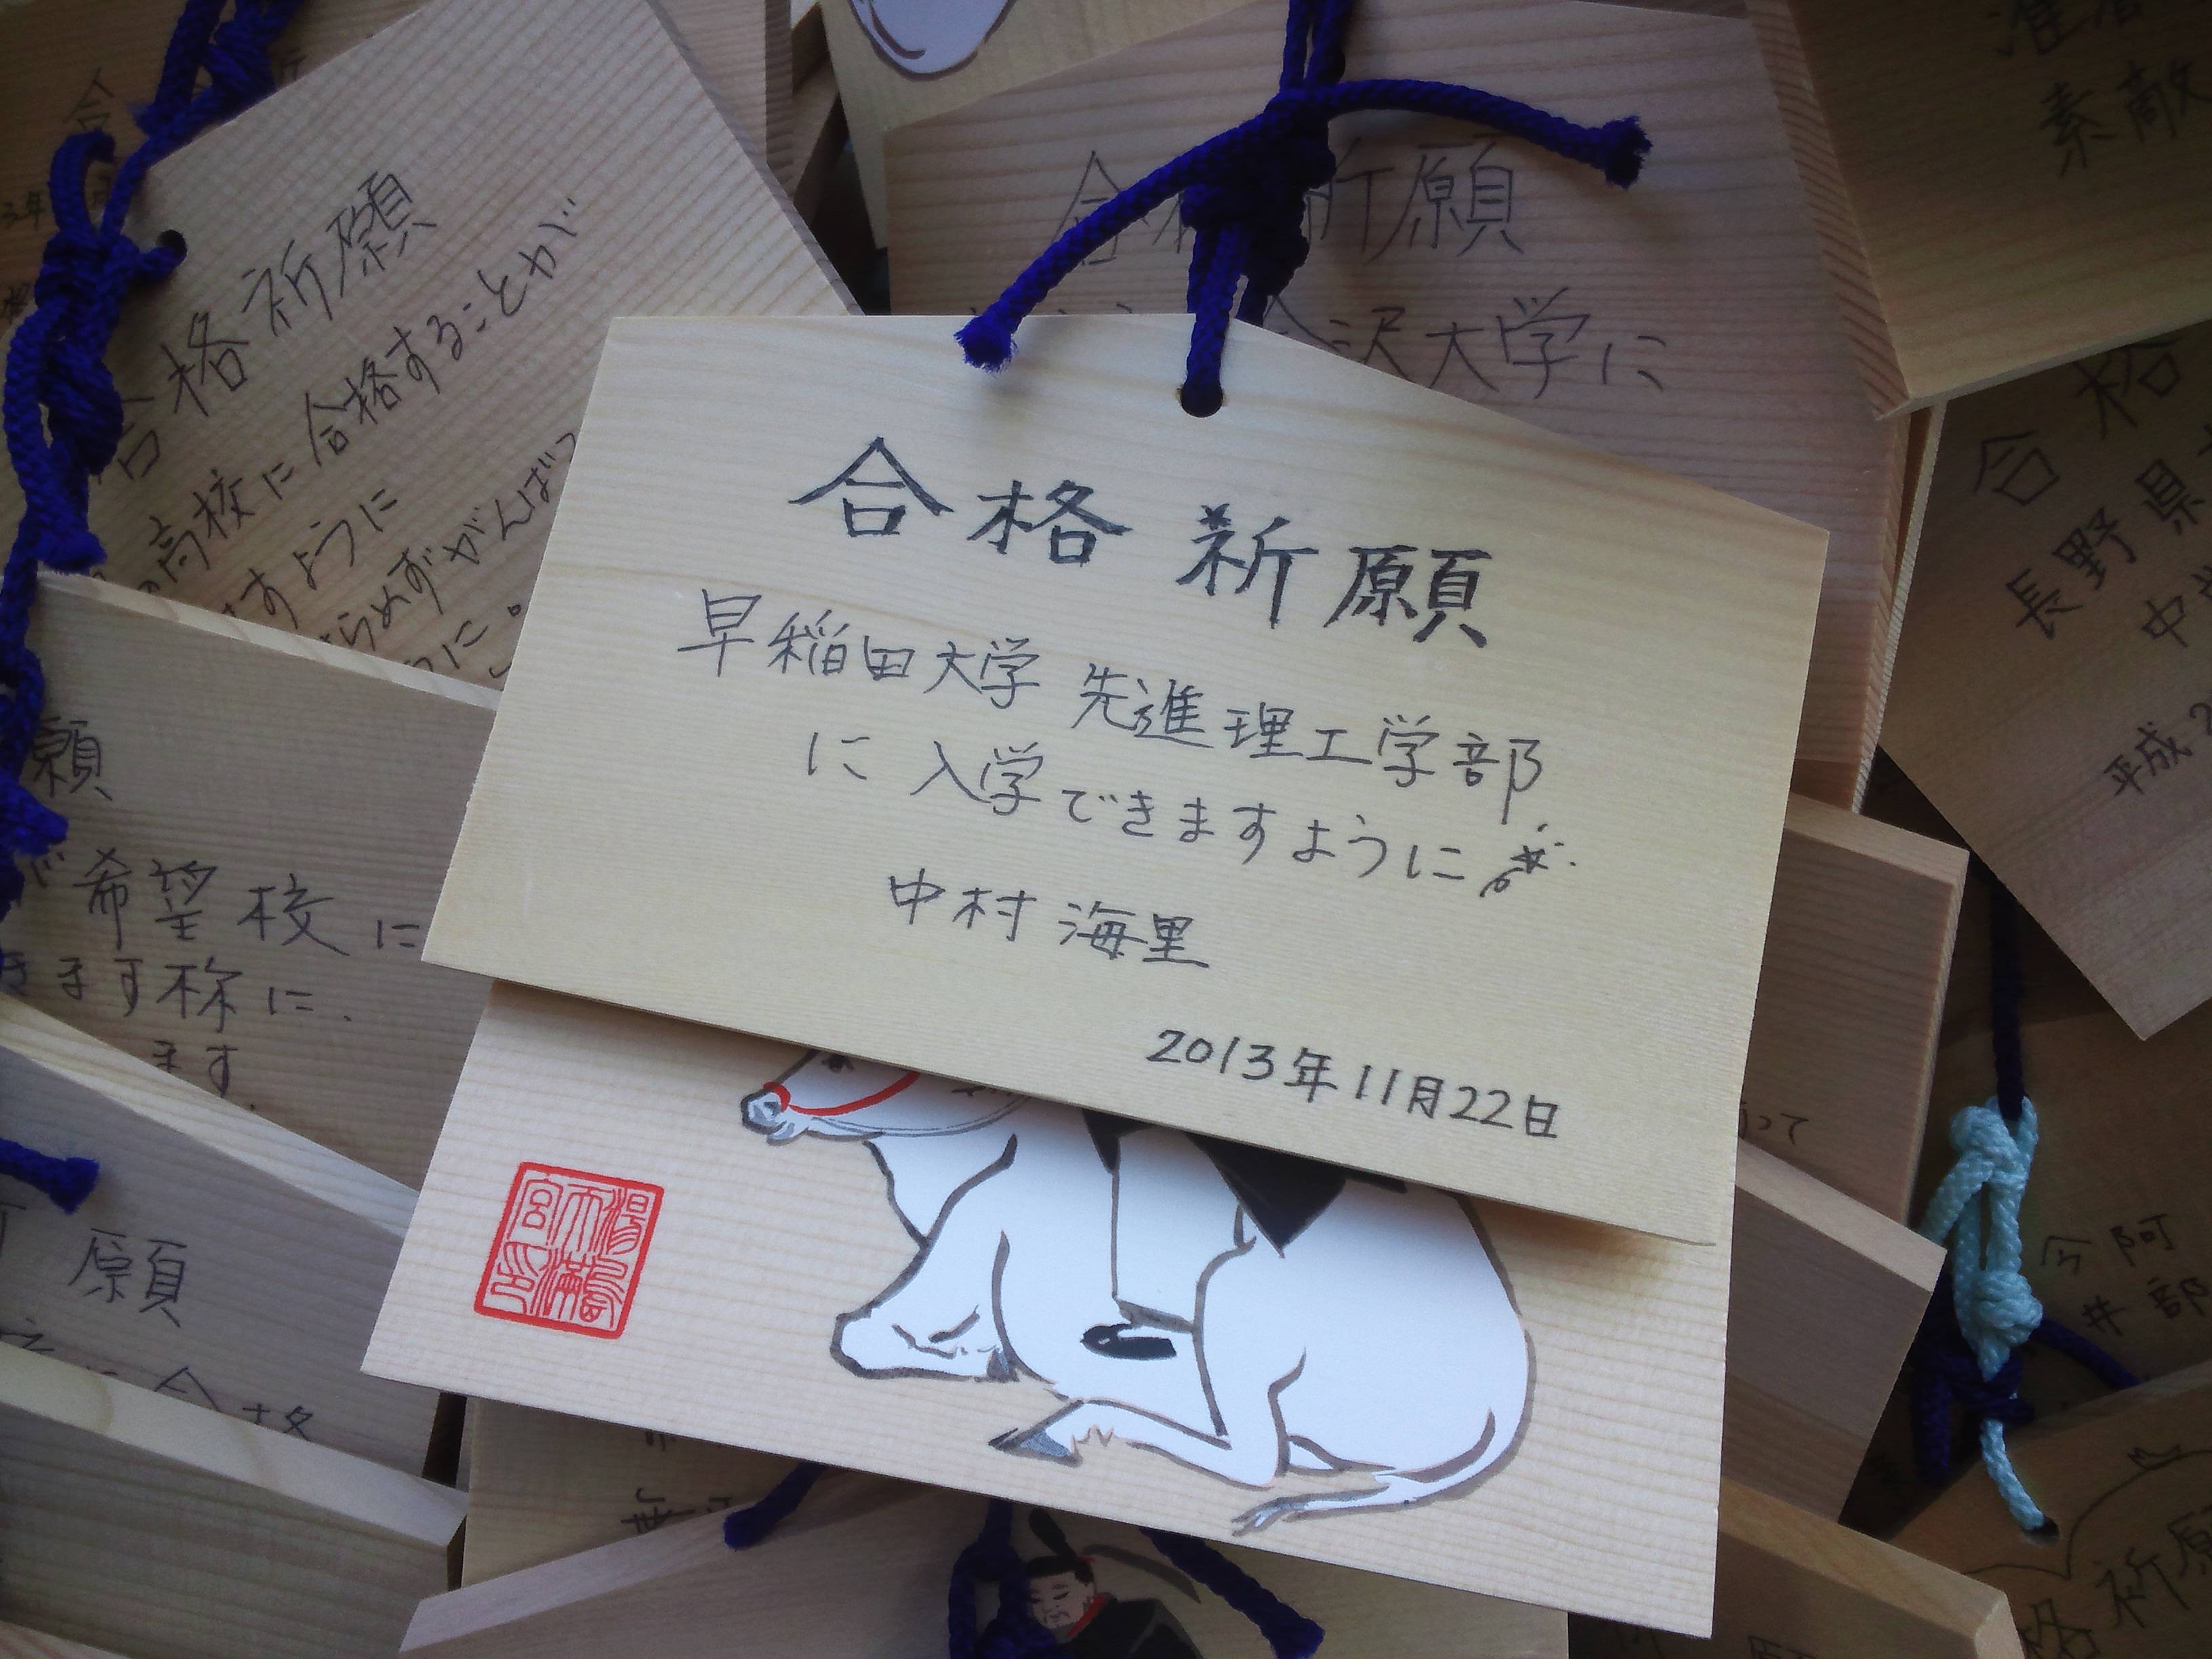 合格祈願
早稲田大学 先進理工学部
に入学できますように
中村 海里
2013年11月22日
合格祈願
高校に合格することが
すように
らめずがんばっ
うに。
合格祈願
金沢大学に
願
希望校に
きます様に.
ます.
願
合格
素敵
合格
長野県
中
平成2
って
今阿
井部
格祈願
湯島天満宮印